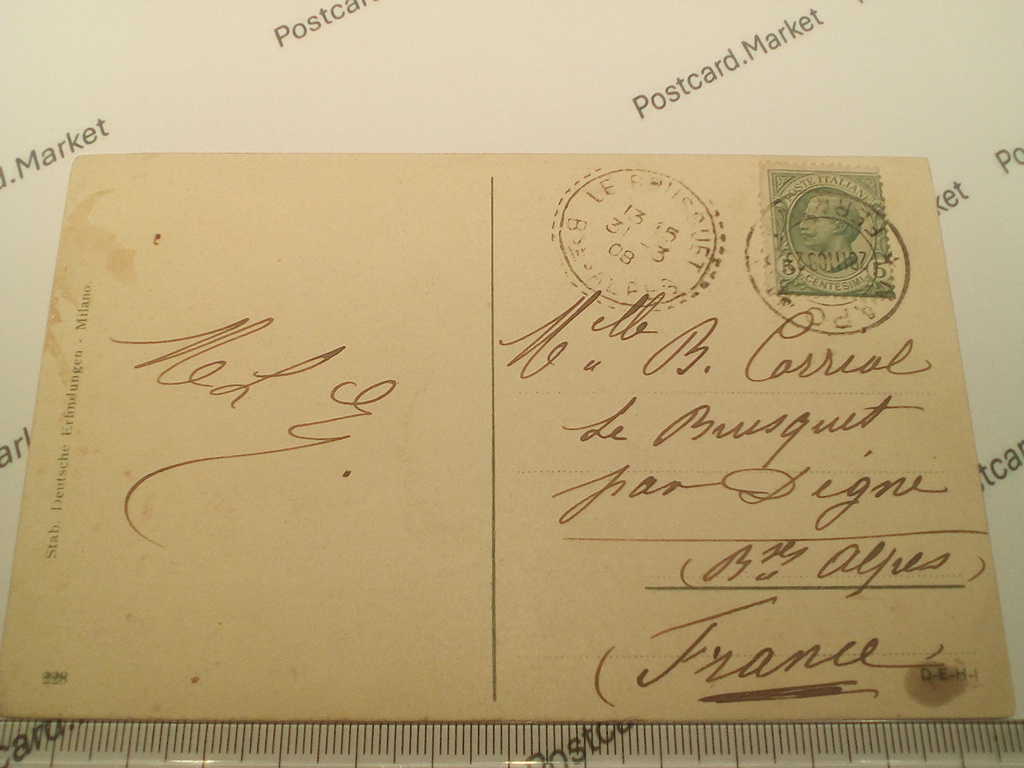 Postcard.Market
Postcard.Market
d.Market
LE BRUSQUET
13 15
31 - 3
08
Bses ALPES
POSTE ITALIANE
5 5
CENTESIMI
Mlle B. Corriol
Le Brusquet
par Digne
(Bses Alpes)
(France)
Stab. Deutsche Erfindungen - Milano.
228
D-E-H-I